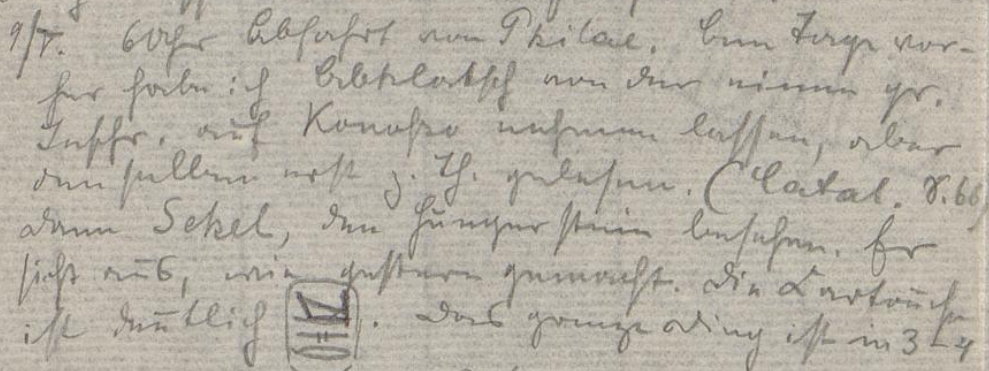 9/V. 6 Uhr Abfahrt von Philae. Am Tage vor-
her habe ich Abklatsch von der einen gr.
Inschr. auf Konosso nehmen lassen, aber
denselben erst z. Th. gelesen. (Catal. S. 66)
dann Sehel, den Hungerstein besehen. Er
sieht aus, wie gestern gemacht. Die Cartouche
ist deutlich . Das ganze Ding ist in 3–4